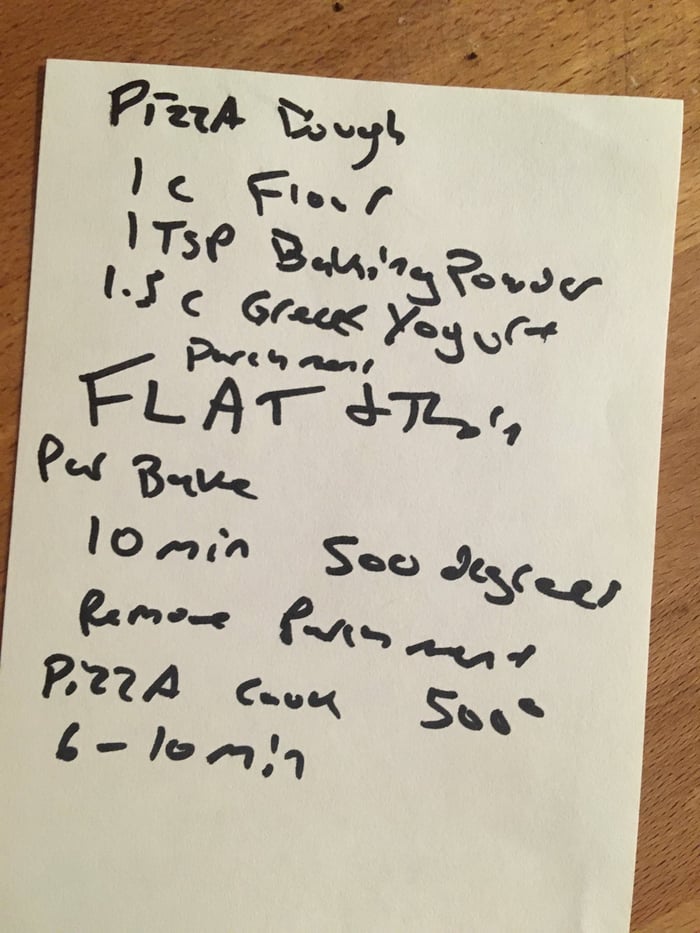 Pizza Dough
1 c Flour
1 Tsp Baking Powder
1.5 c Greek Yogurt
Parchment
FLAT & Thin
Par Bake
10 min 500 degrees
Remove Parchment
Pizza Cook 500°
6 - 10 min